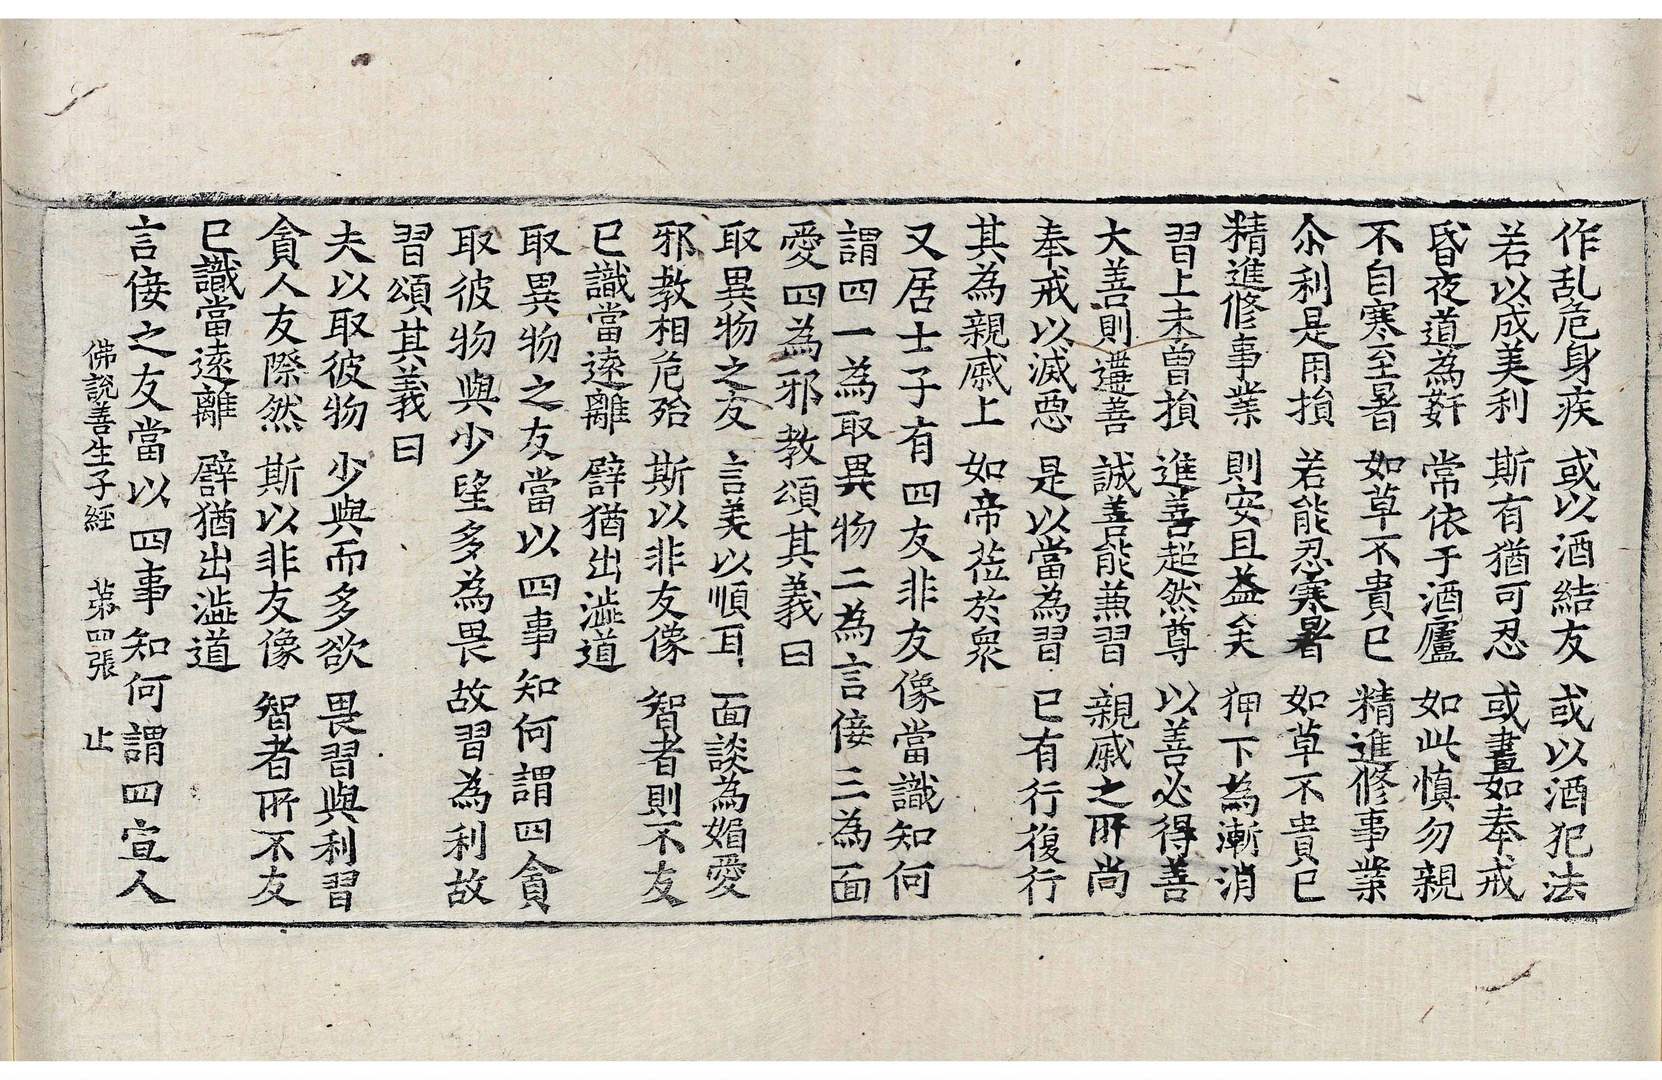 作乱危身疾 或以酒結友 或以酒犯法
若以成美利 斯有猶可忍 或晝如奉戒
昏夜道為姧 常依于酒廬 如此慎勿親
不自寒至暑 如草不貴已 精進修事業
尒利是用損 若能忍寒暑 如草不貴已
精進修事業 則安且益矣 狎下為漸消
習上未曾損 進善超然尊 以善必得善
大善則遭善 誠善能兼習 親戚之所尚
奉戒以滅惡 是以當為習 已有行復行
其為親戚上 如帝莅於眾
又居士子有四友非友像當識知何
謂四一為取異物二為言倿三為面
愛四為邪教頌其義曰
取異物之友 言美以順耳 面談為媚愛
邪教相危殆 斯以非友像 智者則不友
已識當遠離 譬猶出澁道
取異物之友當以四事知何謂四貪
取彼物與少望多為畏故習為利故
習頌其義曰
夫以取彼物 少與而多欲 畏習與利習
貪人友際然 斯以非友像 智者所不友
已識當遠離 譬猶出澁道
言倿之友當以四事知何謂四宣人
佛說善生子經 苐四張 止